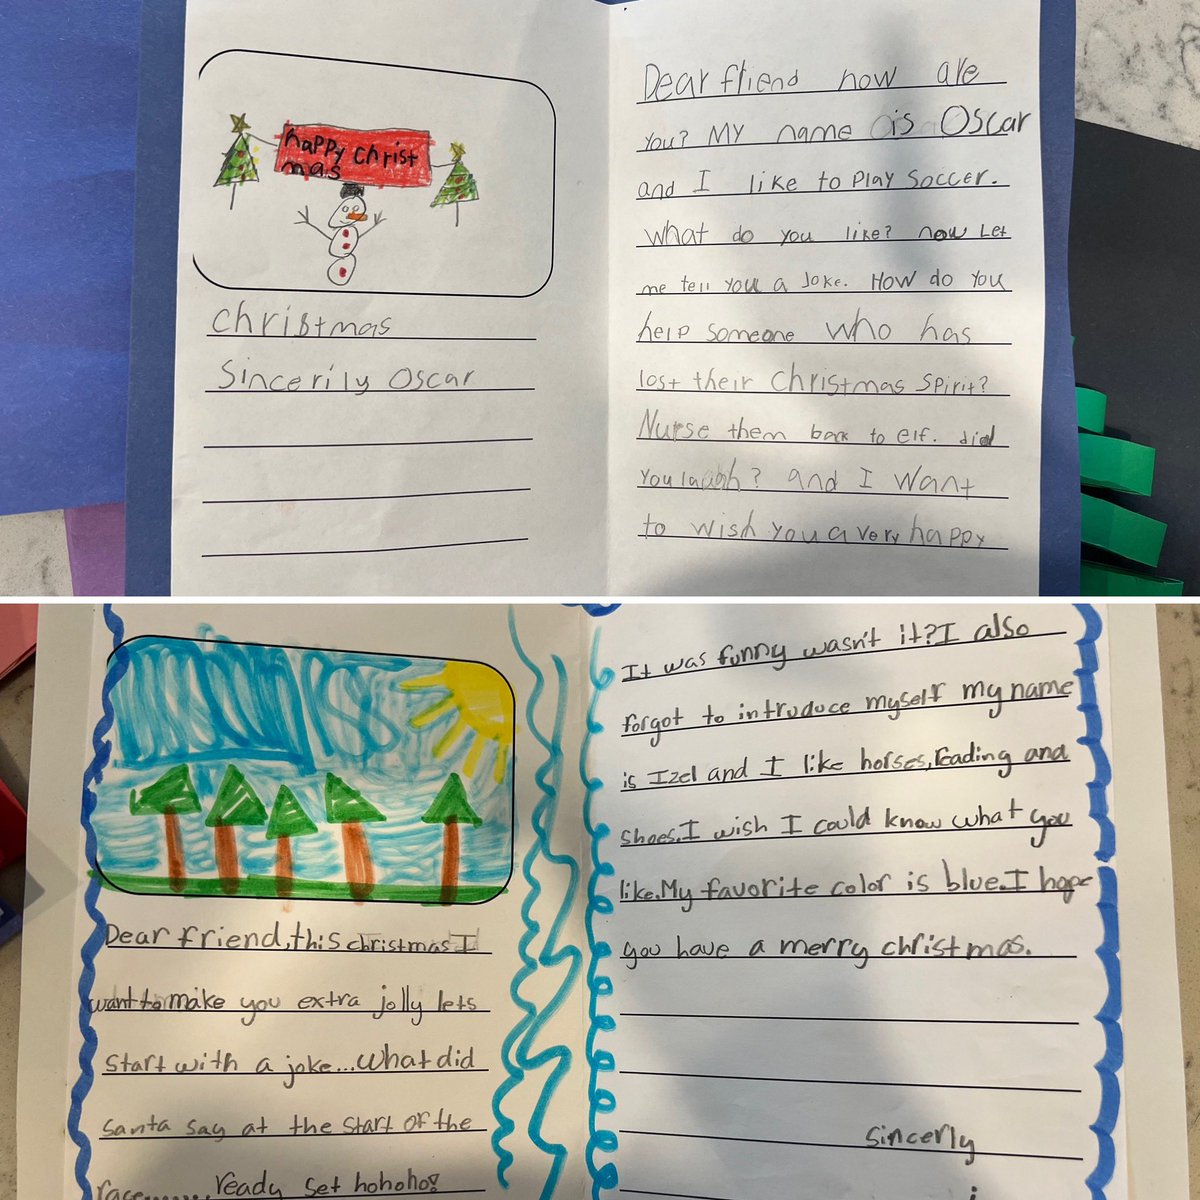 happy christ
mas
christmas
Sincerily Oscar
Dear friend how are
you? My name is Oscar
and I like to Play Soccer.
What do you like? now Let
me tell you a Joke. How do you
help someone who has
lost their Christmas Spirit?
Nurse them back to elf. did
You laugh? and I want
to wish you a very happy
Dear friend, this christmas I
want to make you extra jolly lets
start with a joke...what did
santa say at the start of the
race....... ready set hohoho!
It was funny wasn't it? I also
forgot to introduce myself my name
is Izel and I like horses, reading and
shoes. I wish I could know what you
like. My favorite color is blue. I hope
you have a merry christmas.
sincerly